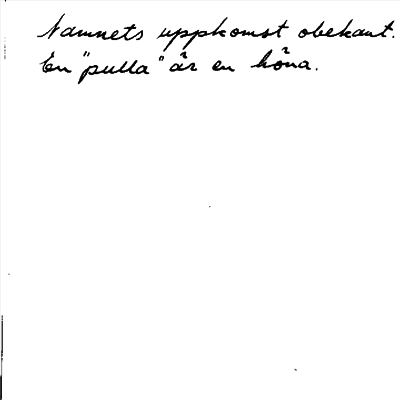 Namnets uppkomst obekant.
En "pulla" är en höna.